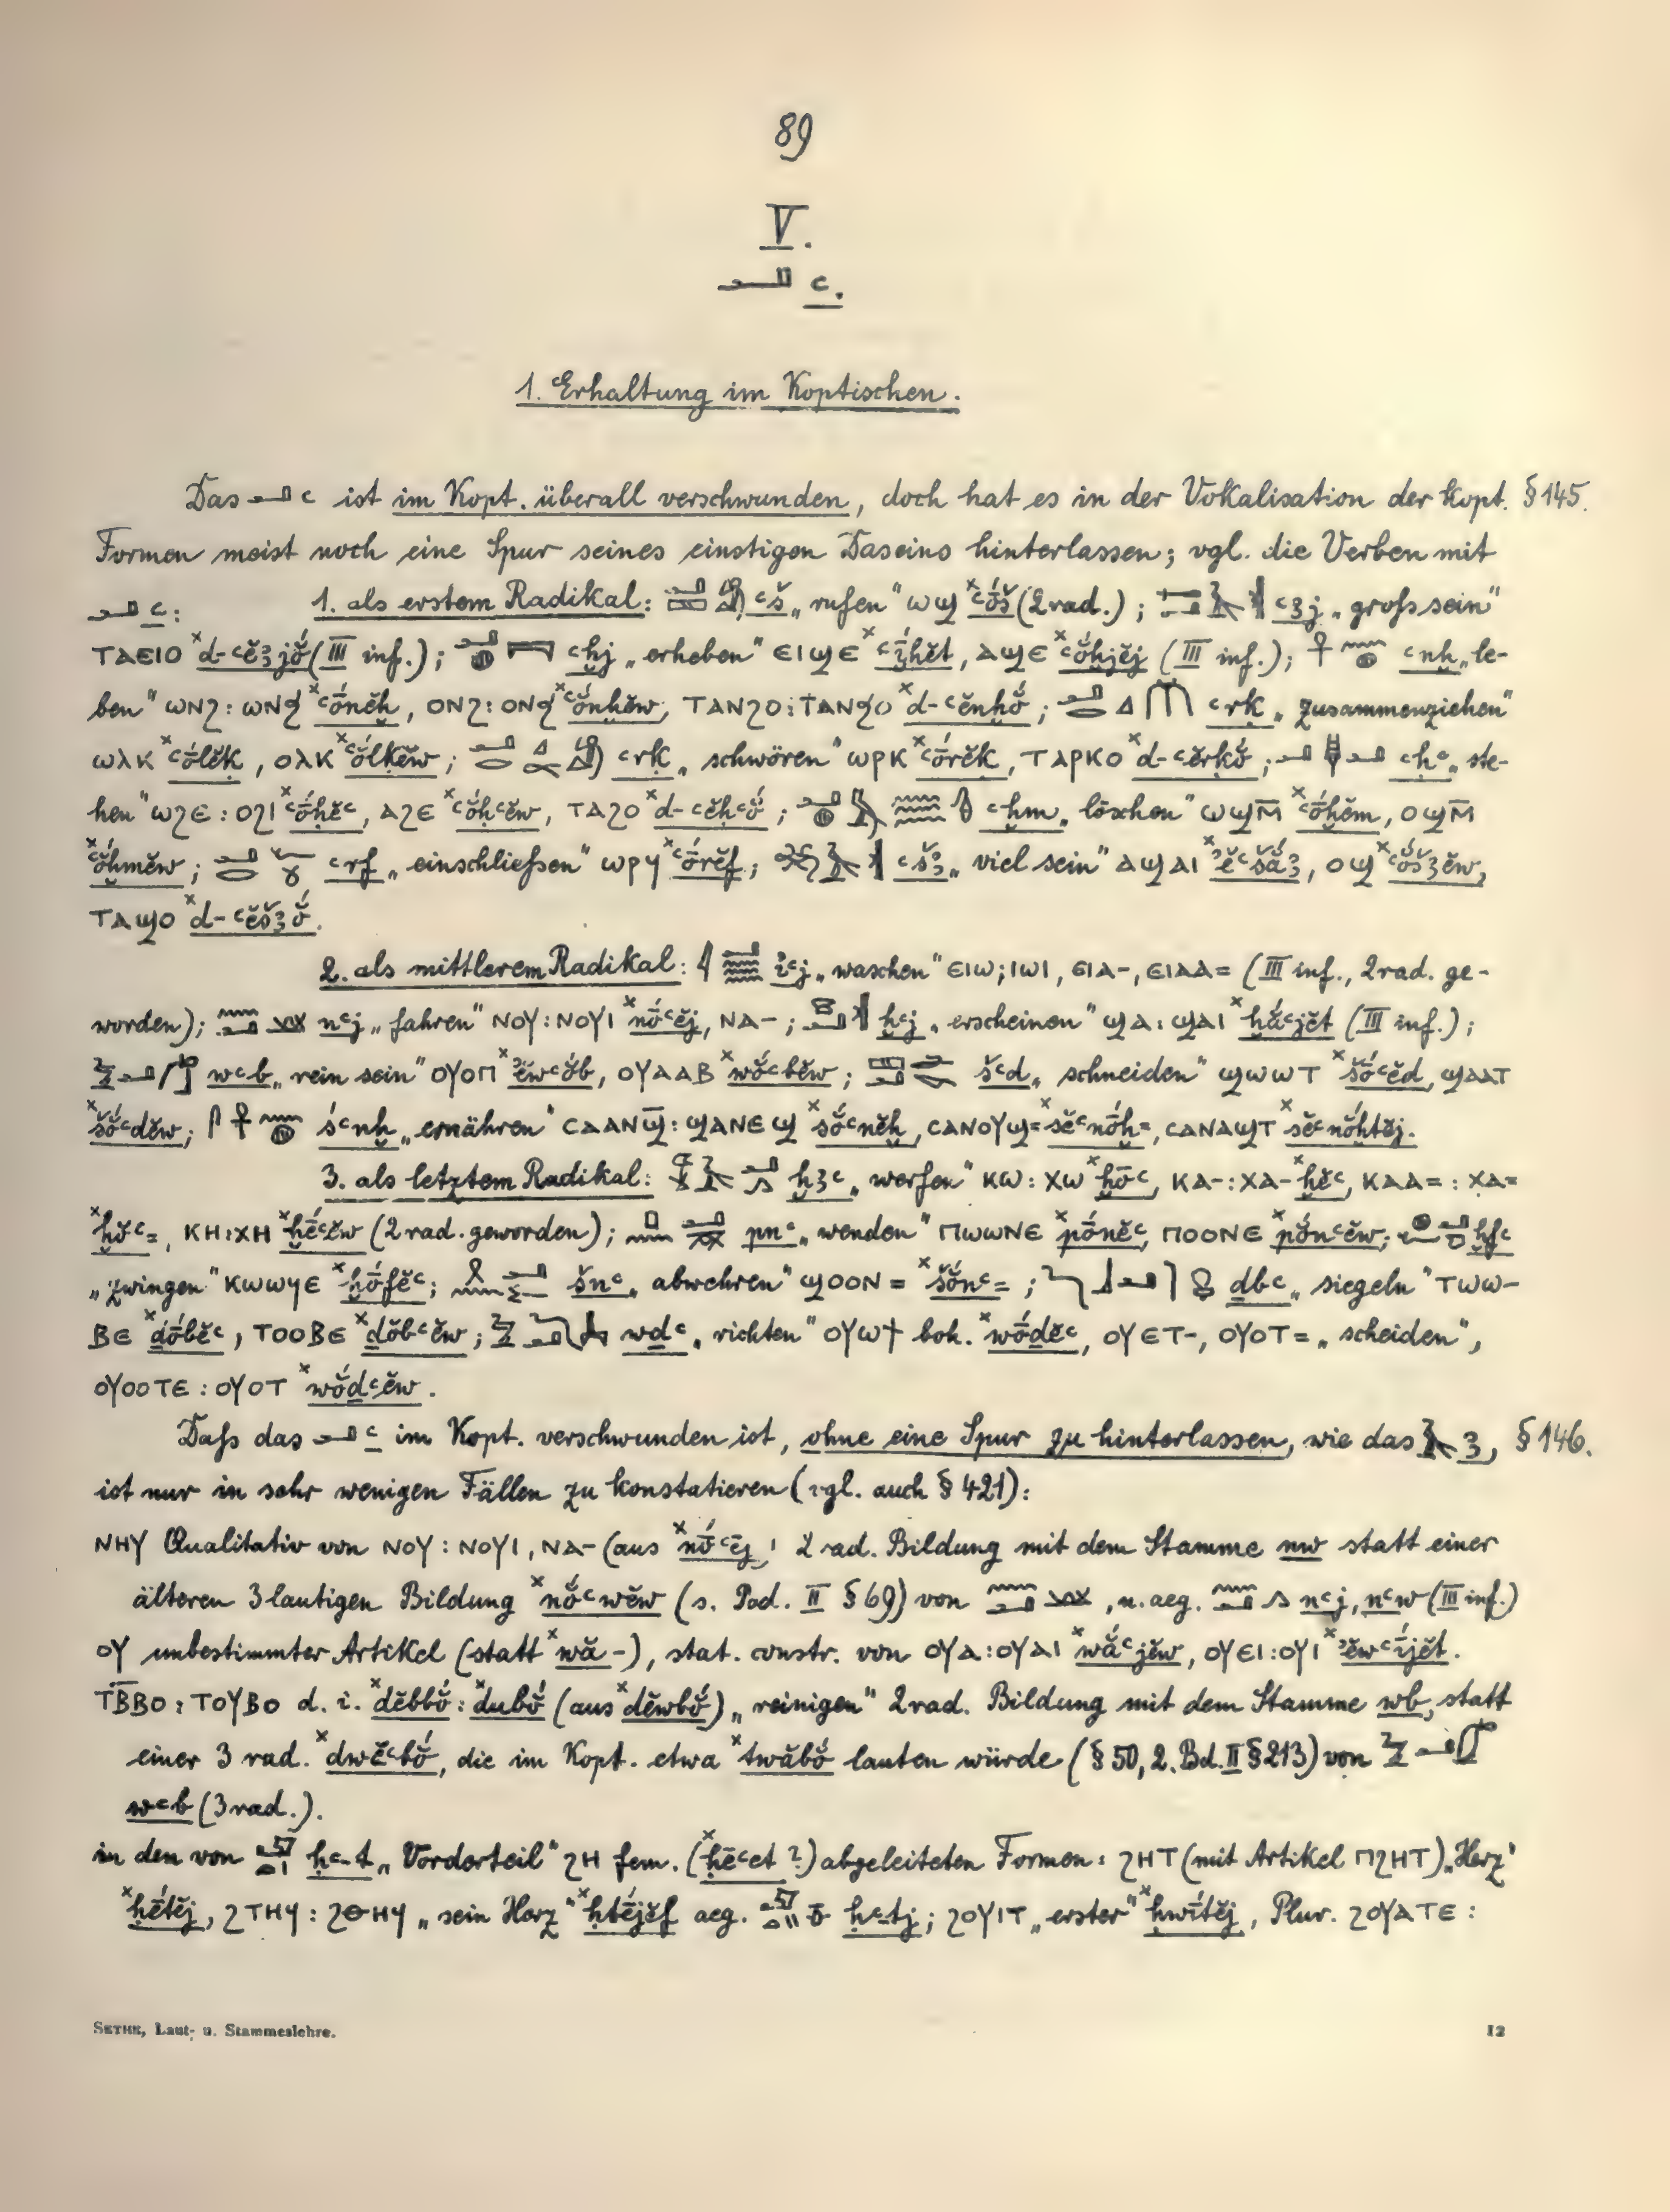 89
V.
𓂝 ꜥ.
1. Erhaltung im Koptischen.
Das 𓂝 ꜥ ist im Kopt. überall verschwunden, doch hat es in der Vokalisation der kopt. § 145.
Formen meist noch eine Spur seines einstigen Daseins hinterlassen; vgl. die Verben mit
𓂝 ꜥ: 1. als erstem Radikal: ꜥš „rufen“ ⲱϣ ˣꜥṓš (2rad.); ꜥꜣj „groſs sein“
ⲧⲁⲉⲓⲟ ˣd-ꜥĕꜣjŏ́ (III inf.); ꜥḫj „erheben“ ⲉⲓϣⲉ ˣꜥī́ḫĕt, ⲁϣⲉ ˣꜥŏ́ḫjĕj (III inf.); ꜥnḫ „le-
ben“ ⲱⲛϩ: ⲱⲛϧ ˣꜥṓnĕḫ, ⲟⲛϩ: ⲟⲛϧ ˣꜥŏ́nḫĕw, ⲧⲁⲛϩⲟ: ⲧⲁⲛϧⲟ ˣd-ꜥĕnḫŏ́; ꜥrḳ „zusammenziehen“
ⲱⲗⲕ ˣꜥṓlĕḳ, ⲟⲗⲕ ˣꜥŏ́lḳĕw; ꜥrḳ „schwören“ ⲱⲣⲕ ˣꜥṓrĕḳ, ⲧⲁⲣⲕⲟ ˣd-ꜥĕrḳŏ́; ꜥḥꜥ „ste-
hen“ ⲱϩⲉ: ⲟϩⲓ ˣꜥṓḥĕꜥ, ⲁϩⲉ ˣꜥŏ́ḥꜥĕw, ⲧⲁϩⲟ ˣd-ꜥĕḥꜥŏ́; ꜥḫm „löschen“ ⲱϣⲙ̄ ˣꜥṓḫĕm, ⲟϣⲙ̄
ˣꜥŏ́ḫmĕw; ꜥrf „einschlieſsen“ ⲱⲣϥ ˣꜥṓrĕf; ꜥšꜣ „viel sein“ ⲁϣⲁⲓ ˣʾĕꜥšắꜣ, ⲟϣ ˣꜥŏ́šꜣĕw,
ⲧⲁϣⲟ ˣd-ꜥĕšꜣŏ́.
2. als mittlerem Radikal: iꜥj „waschen“ ⲉⲓⲱ: ⲓⲱⲓ, ⲉⲓⲁ-, ⲉⲓⲁⲁ= (III inf., 2rad. ge-
worden); nꜥj „fahren“ ⲛⲟⲩ: ⲛⲟⲩⲓ ˣnṓꜥĕj, ⲛⲁ-; ḫꜥj „erscheinen“ ϣⲁ: ϣⲁⲓ ˣḫắꜥjĕt (III inf.);
wꜥb „rein sein“ ⲟⲩⲟⲡ ˣʾĕwꜥŏ́b, ⲟⲩⲁⲁⲃ ˣwŏ́ꜥbĕw; šꜥd „schneiden“ ϣⲱⲱⲧ ˣšṓꜥĕd, ϣⲁⲁⲧ
ˣšŏ́ꜥdĕw; śꜥnḫ „ernähren“ ⲥⲁⲁⲛϣ̄: ϣⲁⲛⲉϣ ˣsŏ́ꜥnĕḫ, ⲥⲁⲛⲟⲩϣ= ˣsĕꜥnṓḫ=, ⲥⲁⲛⲁϣⲧ ˣsĕꜥnŏ́ḫtĕj.
3. als letztem Radikal: ḫꜣꜥ „werfen“ ⲕⲱ: ⲭⲱ ˣḫōꜥ, ⲕⲁ-: ⲭⲁ- ˣḫĕꜥ, ⲕⲁⲁ=: ⲭⲁ=
ˣḫŏꜥ=, ⲕⲏ: ⲭⲏ ˣḫḗꜥĕw (2rad. geworden); pnꜥ „wenden“ ⲡⲱⲱⲛⲉ ˣpṓnĕꜥ, ⲡⲟⲟⲛⲉ ˣpŏ́nꜥĕw; ḫfꜥ
„zwingen“ ⲕⲱⲱϥⲉ ˣḫṓfĕꜥ; šnꜥ „abwehren“ ϣⲟⲟⲛ= ˣšŏ́nꜥ=; ḏbꜥ „siegeln“ ⲧⲱⲱ-
ⲃⲉ ˣḏṓbĕꜥ, ⲧⲟⲟⲃⲉ ˣḏŏ́bꜥĕw; wḏꜥ „richten“ ⲟⲩⲱϯ boh. ˣwṓḏĕꜥ, ⲟⲩⲉⲧ-, ⲟⲩⲟⲧ= „scheiden“,
ⲟⲩⲟⲟⲧⲉ: ⲟⲩⲟⲧ ˣwŏ́ḏꜥĕw.
Daſs das 𓂝 ꜥ im Kopt. verschwunden ist, ohne eine Spur zu hinterlassen, wie das 𓄿 ꜣ, § 146.
ist nur in sehr wenigen Fällen zu konstatieren (vgl. auch § 421):
ⲛⲏⲩ Qualitativ von ⲛⲟⲩ: ⲛⲟⲩⲓ, ⲛⲁ- (aus ˣnṓꜥĕj, 2rad. Bildung mit dem Stamme nw statt einer
älteren 3lautigen Bildung ˣnŏ́ꜥwĕw (s. Bd. II § 69) von, n.aeg. nꜥj, nꜥw (III inf.)
ⲟⲩ unbestimmter Artikel (statt ˣwă-), stat. constr. von ⲟⲩⲁ: ⲟⲩⲁⲓ ˣwắꜥjĕw, ⲟⲩⲉⲓ: ⲟⲩⲓ ˣʾĕwꜥī́jĕt.
ⲧⲃ̄ⲃⲟ: ⲧⲟⲩⲃⲟ d. i. ˣdĕbbŏ́: ˣdubŏ́ (aus ˣdĕwbŏ́) „reinigen“ 2rad. Bildung mit dem Stamme wb, statt
einer 3 rad. ˣdwĕꜥbŏ́, die im Kopt. etwa ˣtwăbŏ́ lauten würde (§ 50, 2. Bd. II § 213) von
wꜥb (3rad.).
in den von ḥꜥ-t „Vorderteil“ ϩⲏ fem. (ˣḥēꜥet ?) abgeleiteten Formen: ϩⲏⲧ (mit Artikel ⲡϩⲏⲧ) „Herz“
ˣḥḗtĕj, ϩⲧⲏϥ: ϩⲑⲏϥ „sein Herz“ ˣḥtḗjĕf aeg. ḥꜥtj; ϩⲟⲩⲓⲧ „erster“ ˣḥwī́tĕj, Plur. ϩⲟⲩⲁⲧⲉ:
SETHE, Laut- u. Stammeslehre. 12